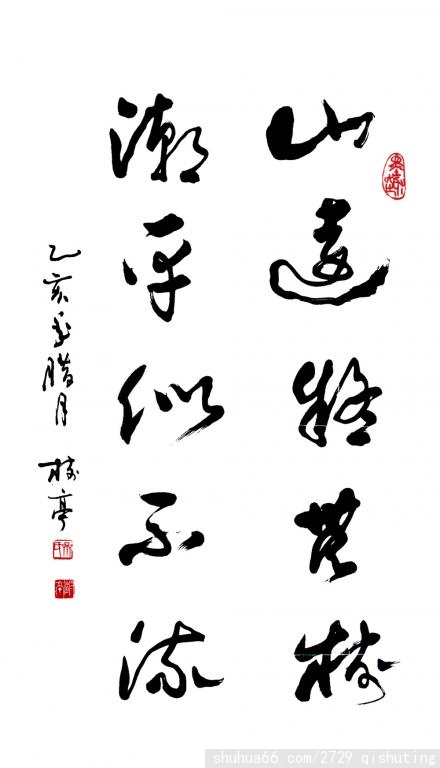 山遠疑無樹
潮平似不流
乙亥年腊月 树亭
shuhua66.com/2729 qishuting